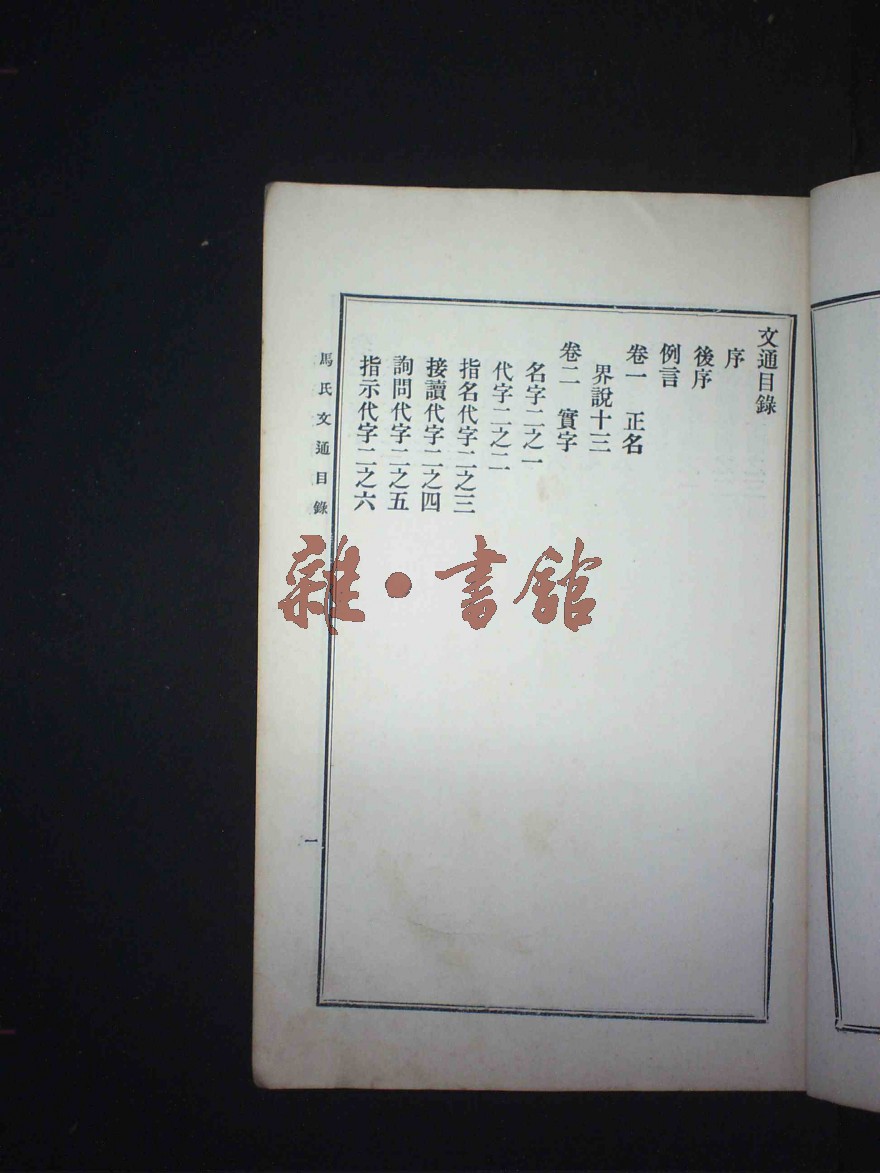 文通目錄
序
後序
例言
卷一　正名
界說十三
卷二　實字
名字二之一
代字二之二
指名代字二之三
接讀代字二之四
詢問代字二之五
指示代字二之六
馬氏文通目錄
一
雜·書館